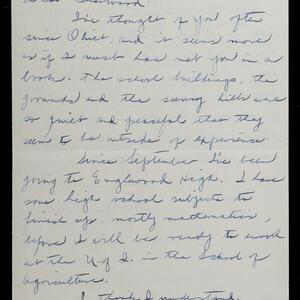 Dear Sherwood:
I've thought of you often
since Ohio, and it seems more
as if I must have met you in a
book. The school buildings, the
grounds and the sunny hills were
so quiet and peaceful that they
seem to be outside of experience.
Since September I've been
going to Englewood High. I have
some high school subjects to
finish up, mostly mathematics,
before I will be ready to enroll
at the U. of I. in the School of
Agriculture.
I think I understand